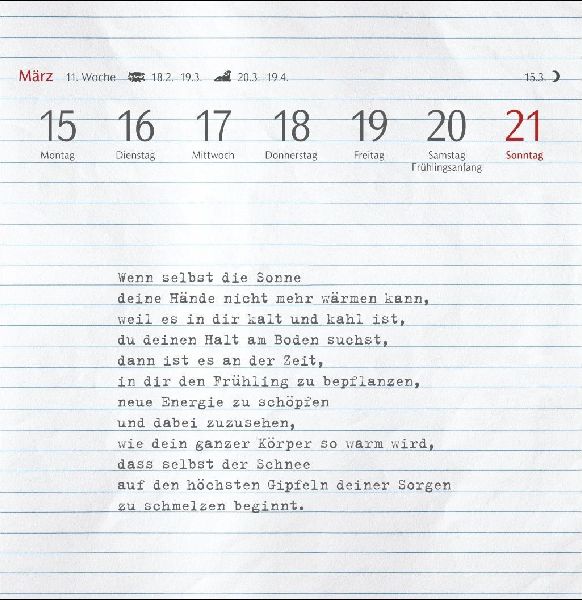 März 11. Woche 18.2. 19.3. 20.3. 19.4. 15.3.
15 16 17 18 19 20 21
Montag Dienstag Mittwoch Donnerstag Freitag Samstag Sonntag
Frühlingsanfang
Wenn selbst die Sonne
deine Hände nicht mehr wärmen kann,
weil es in dir kalt und kahl ist,
du deinen Halt am Boden suchst,
dann ist es an der Zeit,
in dir den Frühling zu bepflanzen,
neue Energie zu schöpfen
und dabei zuzusehen,
wie dein ganzer Körper so warm wird,
dass selbst der Schnee
auf den höchsten Gipfeln deiner Sorgen
zu schmelzen beginnt.